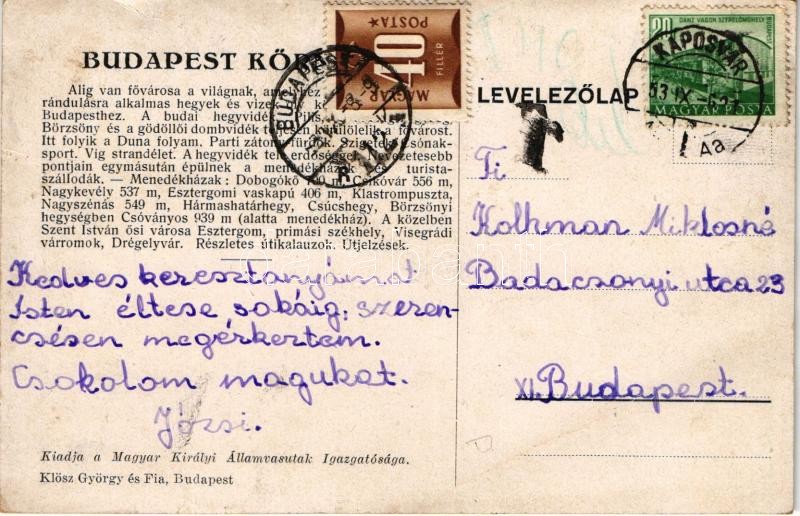 BUDAPEST KÖR
Alig van fővárosa a világnak, amelyhez
rándulásra alkalmas hegyek és vizek
Budapesthez. A budai hegyvidék, Pilis,
Börzsöny és a gödöllői dombvidék teljesen körülölelik a fővárost.
Itt folyik a Duna folyam. Parti zátony fürdők. Szigetek. Csónak-
sport. Víg strandélet. A hegyvidék telt erdőséges. Nevezetesebb
pontjain egymásután épülnek a menedékházak és turista-
szállodák. — Menedékházak: Dobogókő m, Csikóvár 556 m,
Nagykevély 537 m, Esztergomi vaskapú 406 m, Klastrompuszta,
Nagyszénás 549 m, Hármashatárhegy, Csúcshegy, Börzsönyi
hegységben Csóványos 939 m (alatta menedékház). A közelben
Szent István ősi városa Esztergom, primási székhely, Visegrádi
várromok, Drégelyvár. Részletes útikalauzok. Utjelzések.
Kedves keresztanyámat
Isten éltese sokáig, szeren-
csésen megérkeztem.
Csokolom magukat.
Józsi.
Kiadja a Magyar Királyi Államvasutak Igazgatósága.
Klösz György és Fia, Budapest
MAGYAR POSTA
40
FILLÉR
BUDAPEST
LEVELEZŐLAP
T
20
GANZ VAGON SZERELŐMŰHELY
BUDAPEST
MAGYAR POSTA
KAPOSVÁR
53 IX
Aa
Ti
Kollman Miklosné
Badacsonyi utca 23
XI. Budapest.